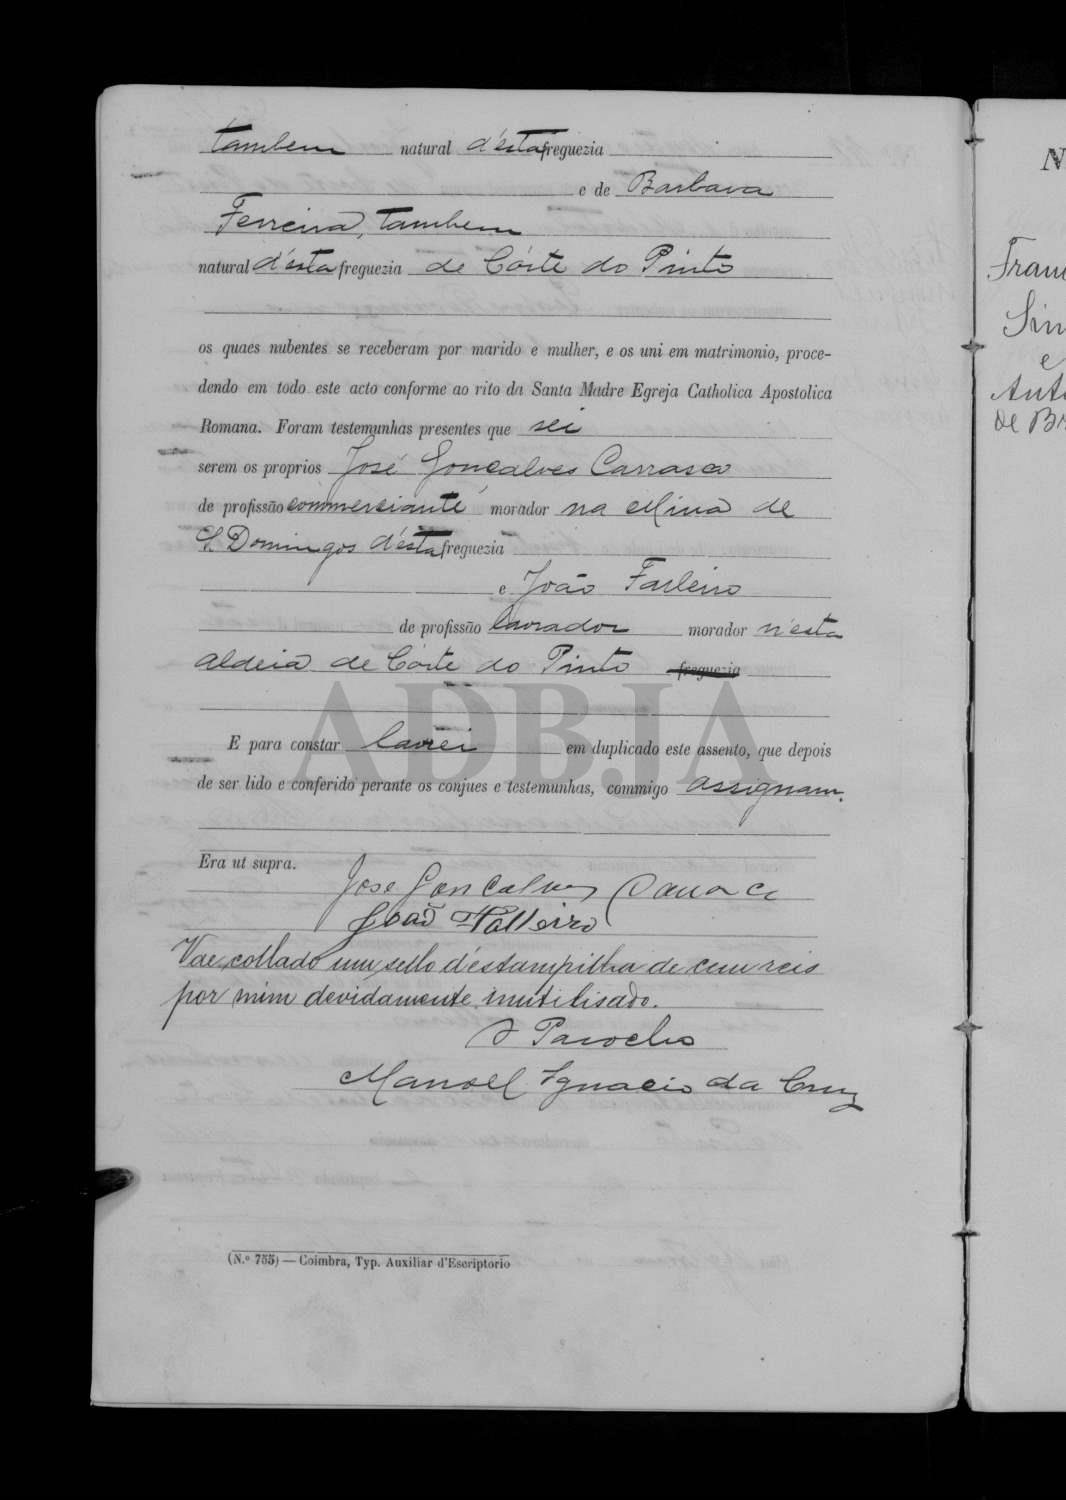 tambem natural d'esta freguezia
e de Barbara
Ferreira, tambem
natural d'esta freguezia de Córte do Pinto
os quaes nubentes se receberam por marido e mulher, e os uni em matrimonio, proce-
dendo em todo este acto conforme ao rito da Santa Madre Egreja Catholica Apostolica
Romana. Foram testemunhas presentes que sei
serem os proprios José Gonçalves Carrasco
de profissão commerciante morador na Mina de
S. Domingos d'esta freguezia
e João Farleiro
de profissão lavrador morador n'esta
aldeia de Córte do Pinto freguezia
E para constar lavrei em duplicado este assento, que depois
de ser lido e conferido perante os conjues e testemunhas, commigo assignam.
Era ut supra.
Jose Goncalves
João
Vae collado um sello d'estampilha de cem reis
por mim devidamente inutilisado.
O Parocho
Manoel Ignacio da Cruz
(N.º 755) — Coimbra, Typ. Auxiliar d'Escriptorio
ADBJA
N
Fran
Sim
e
Anto
de Br